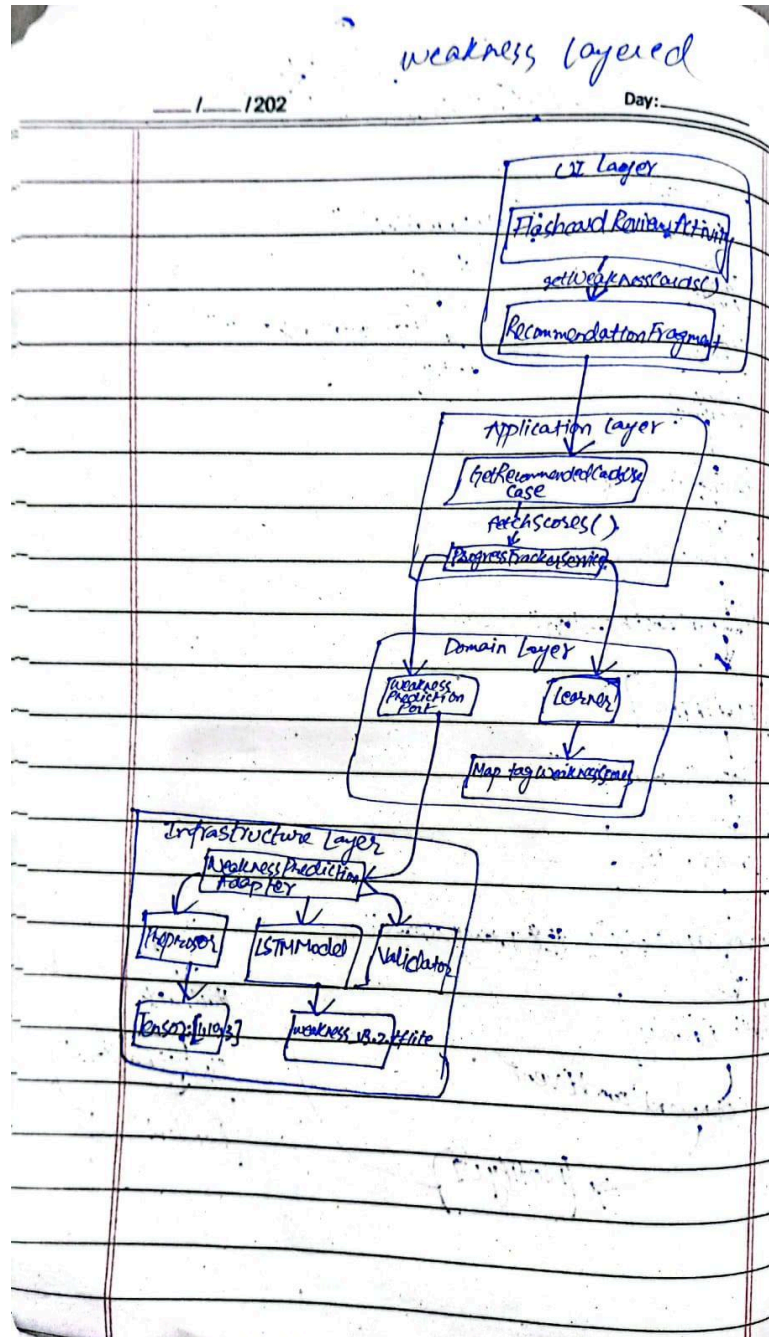 weakness layered
___/___/202 Day:______
UI Layer
FlashcardReviewActivity
getWeaknessCards()
RecommendationFragment
Application Layer
GetRecommendedCardsUse
Case
fetchScores()
ProgressTrackerService
Domain Layer
Weakness
Prediction
Port
Learner
Map tagWeaknessScores
Infrastructure Layer
WeaknessPrediction
Adapter
LSTMModel
Validator
weakness_v3.2.tflite